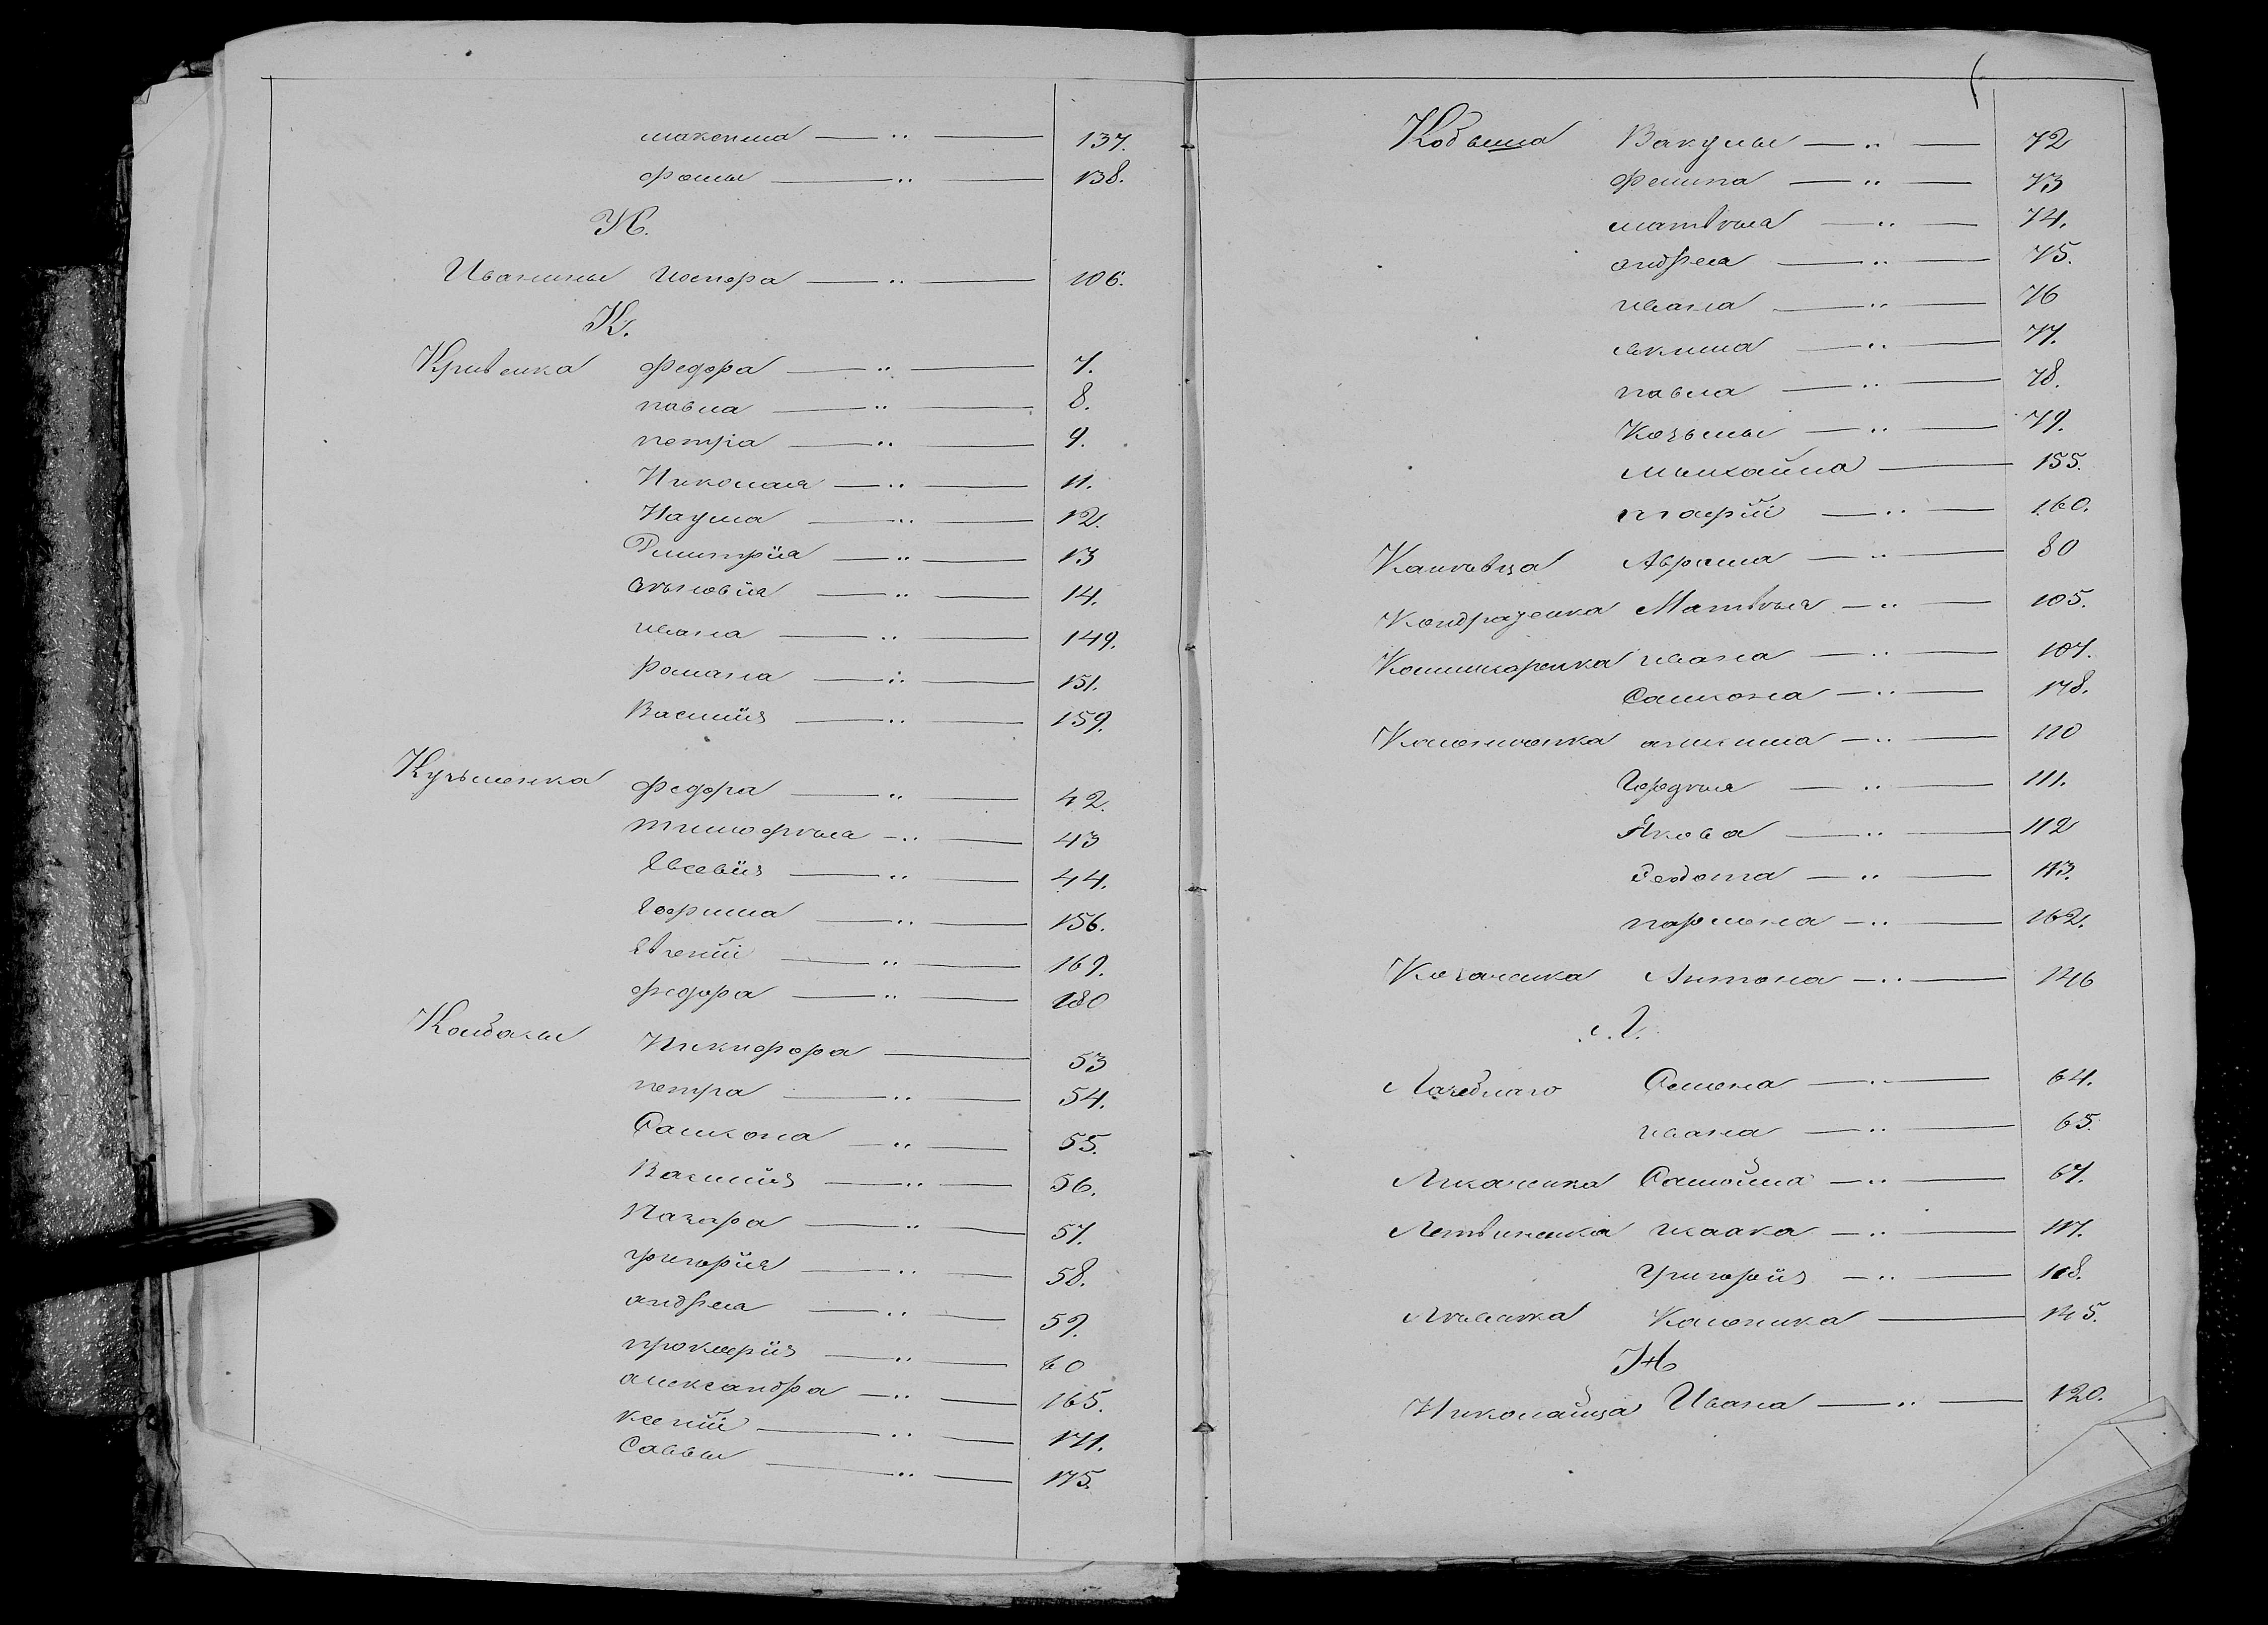 максима — „ — 137.
фомы — „ — 138.
И.
Иванины Иосифа — „ — 106.
К.
Кривенка федора — „ — 7.
павла — „ — 8.
петра — „ — 9.
Николая — „ — 11.
Наума — „ — 12.
Дмитрія — „ — 13
14.
ивана — „ — 149.
Романа — „ — 151.
Василія — „ — 159.
Кузьменка федора — „ — 42.
тимофѣя — „ — 43
Евсевія — „ — 44.
Ефрима — „ — 156.
Евгеніи — „ — 169.
федора — „ — 180
Никифора — 53
петра — „ — 54.
Самсона — „ — 55.
Василія — „ — 56.
Назара — „ — 57.
григорія — „ — 58.
андрея — „ — 59.
прокофія — „ — 60
александра — „ — 165.
ксеніи — „ — 171.
Саввы — „ — 175.
Кобыша Вакулы — „ — 72
73
матвѣя — „ — 74.
андрея — „ — 75.
ивана — „ — 76
якима — „ — 77.
павла — „ — 78.
Козьмы — „ — 79.
Михайла — 155.
160.
Аврама — „ — 80
Кондраценка Матвѣя — „ — 105.
ивана — „ — 107.
Самсона — „ — 178.
110
Гордѣя — „ — 111.
Якова — „ — 112
Федота — „ — 113.
пармена — „ — 162.
Козаченка Антона — „ — 146
Л.
Семена — „ — 64.
ивана — „ — 65.
Самойла — „ — 67.
Летвиненка исаака — „ — 117.
Григорія — „ — 118.
Каленика — 145.
Н
Николайца Ивана — „ — 120.